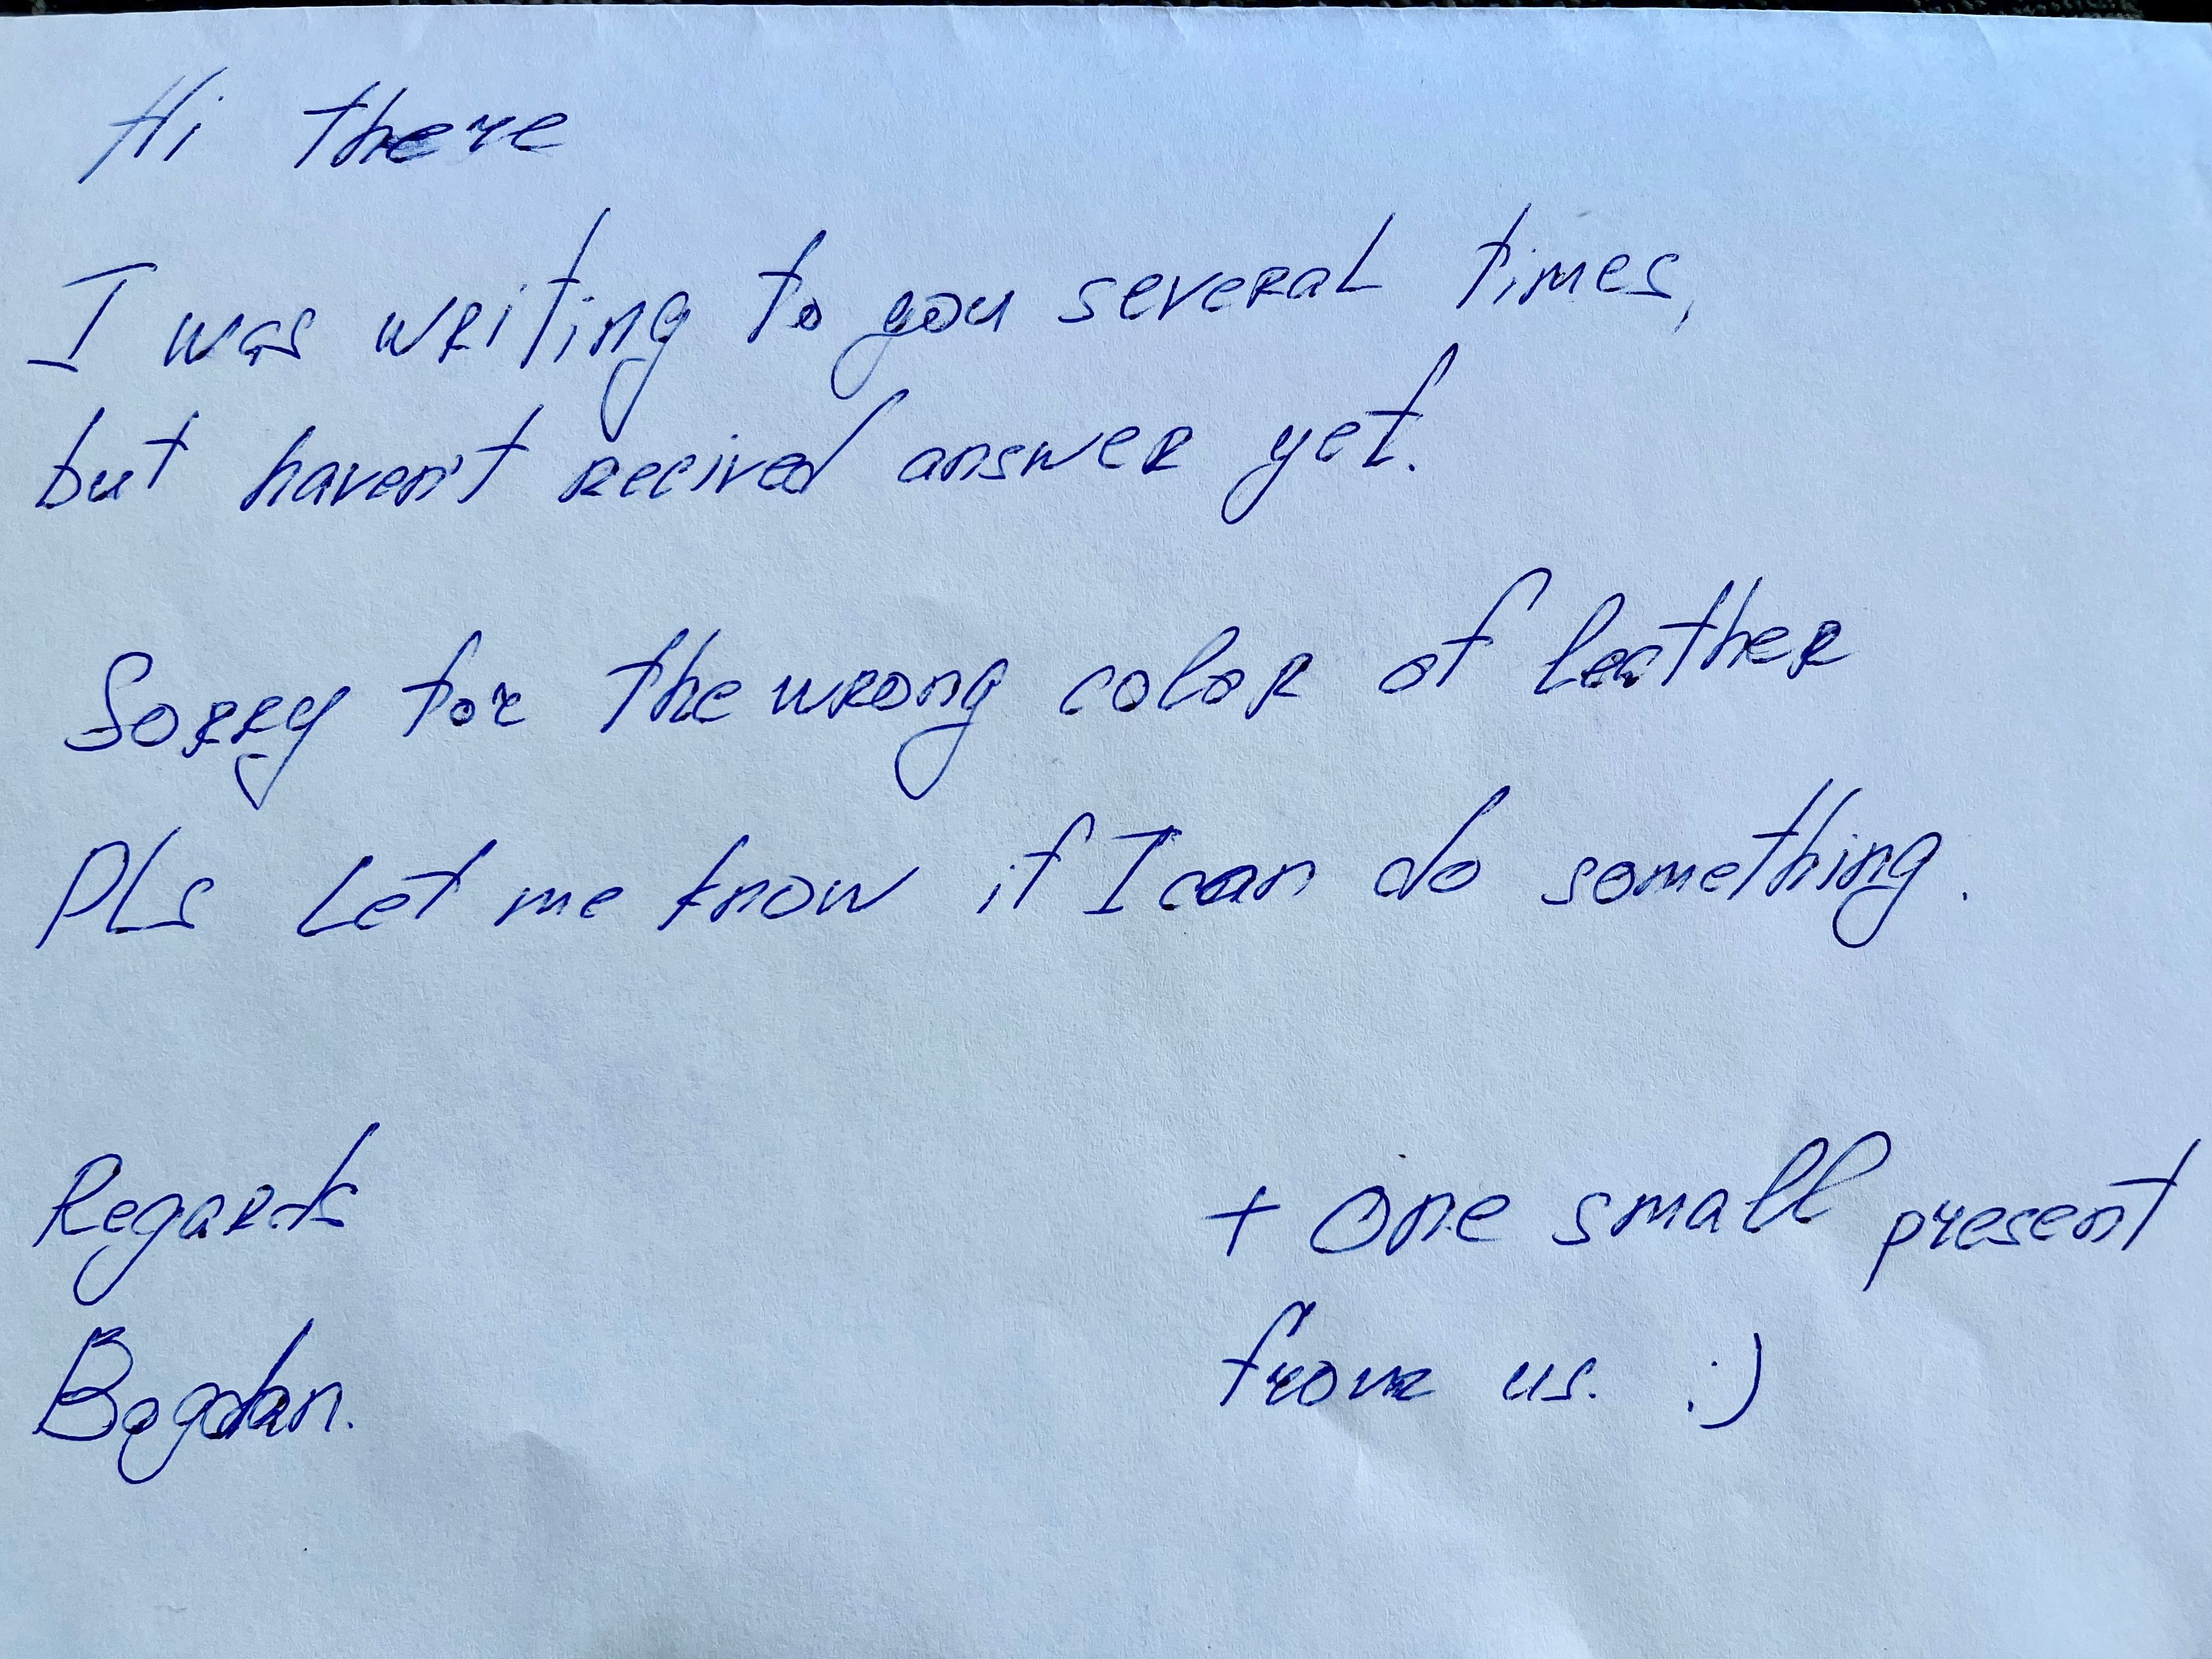 Hi there
I was writing to you several times,
but haven't recived answer yet.
Sorry for the wrong color of leather
Pls Let me know if I can do something.
Regards
Bogdan.
+ One small present
from us. :)